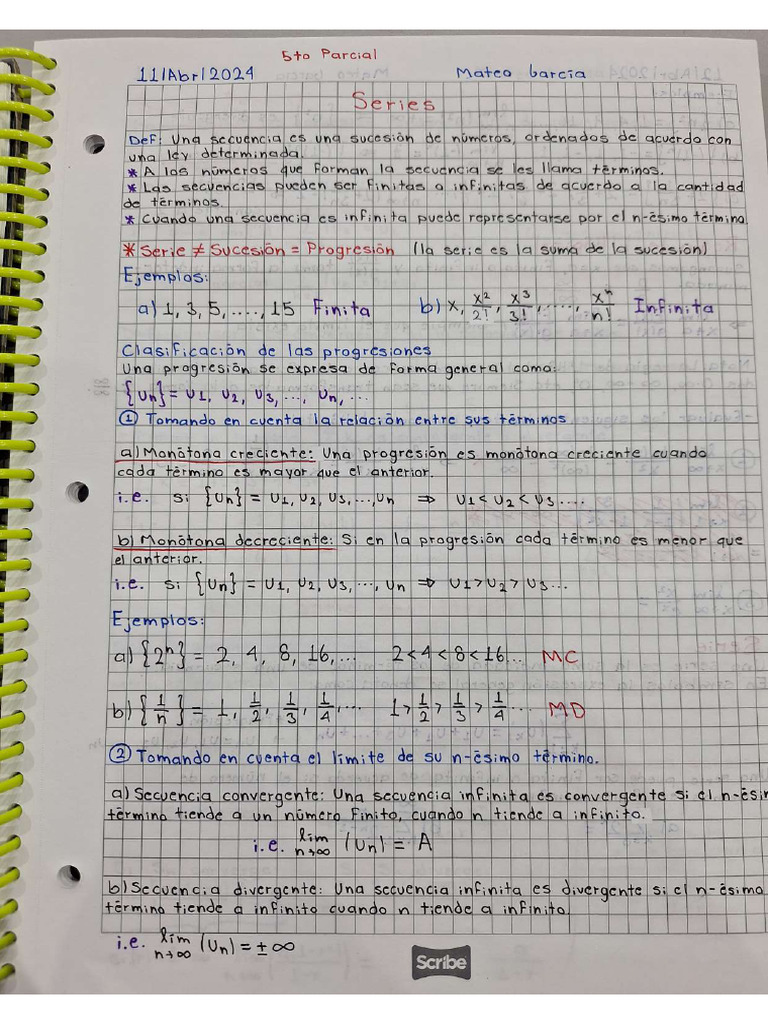 5to Parcial
11/Abr/2024 Mateo García
Series
Def: Una secuencia es una sucesión de números, ordenados de acuerdo con
una ley determinada.
* A los números que forman la secuencia se les llama términos.
* Las secuencias pueden ser finitas o infinitas de acuerdo a la cantidad
de términos.
* Cuando una secuencia es infinita puede representarse por el n-ésimo término.
* Serie ≠ Sucesión = Progresión (la serie es la suma de la sucesión)
Ejemplos:
a) 1, 3, 5, ...., 15 Finita b) x, x²/2!, x³/3!, ...., xⁿ/n! Infinita
Clasificación de las progresiones
Una progresión se expresa de forma general como:
{Un} = U1, U2, U3, ..., Un, ...
① Tomando en cuenta la relación entre sus términos
a) Monótona creciente: Una progresión es monótona creciente cuando
cada término es mayor que el anterior.
i.e. si {Un} = U1, U2, U3, ..., Un ⇒ U1 < U2 < U3 ....
b) Monótona decreciente: Si en la progresión cada término es menor que
el anterior.
i.e. si {Un} = U1, U2, U3, ..., Un ⇒ U1 > U2 > U3 ...
Ejemplos:
a) {2ⁿ} = 2, 4, 8, 16, ... 2 < 4 < 8 < 16 ... MC
b) {1/n} = 1, 1/2, 1/3, 1/4, ... 1 > 1/2 > 1/3 > 1/4 ... MD
② Tomando en cuenta el límite de su n-ésimo término.
a) Secuencia convergente: Una secuencia infinita es convergente si el n-ésim
término tiende a un número finito, cuando n tiende a infinito.
i.e. lím n→∞ (Un) = A
b) Secuencia divergente: Una secuencia infinita es divergente si el n-ésimo
término tiende a infinito cuando n tiende a infinito.
i.e. lím n→∞ (Un) = ± ∞
Scribe